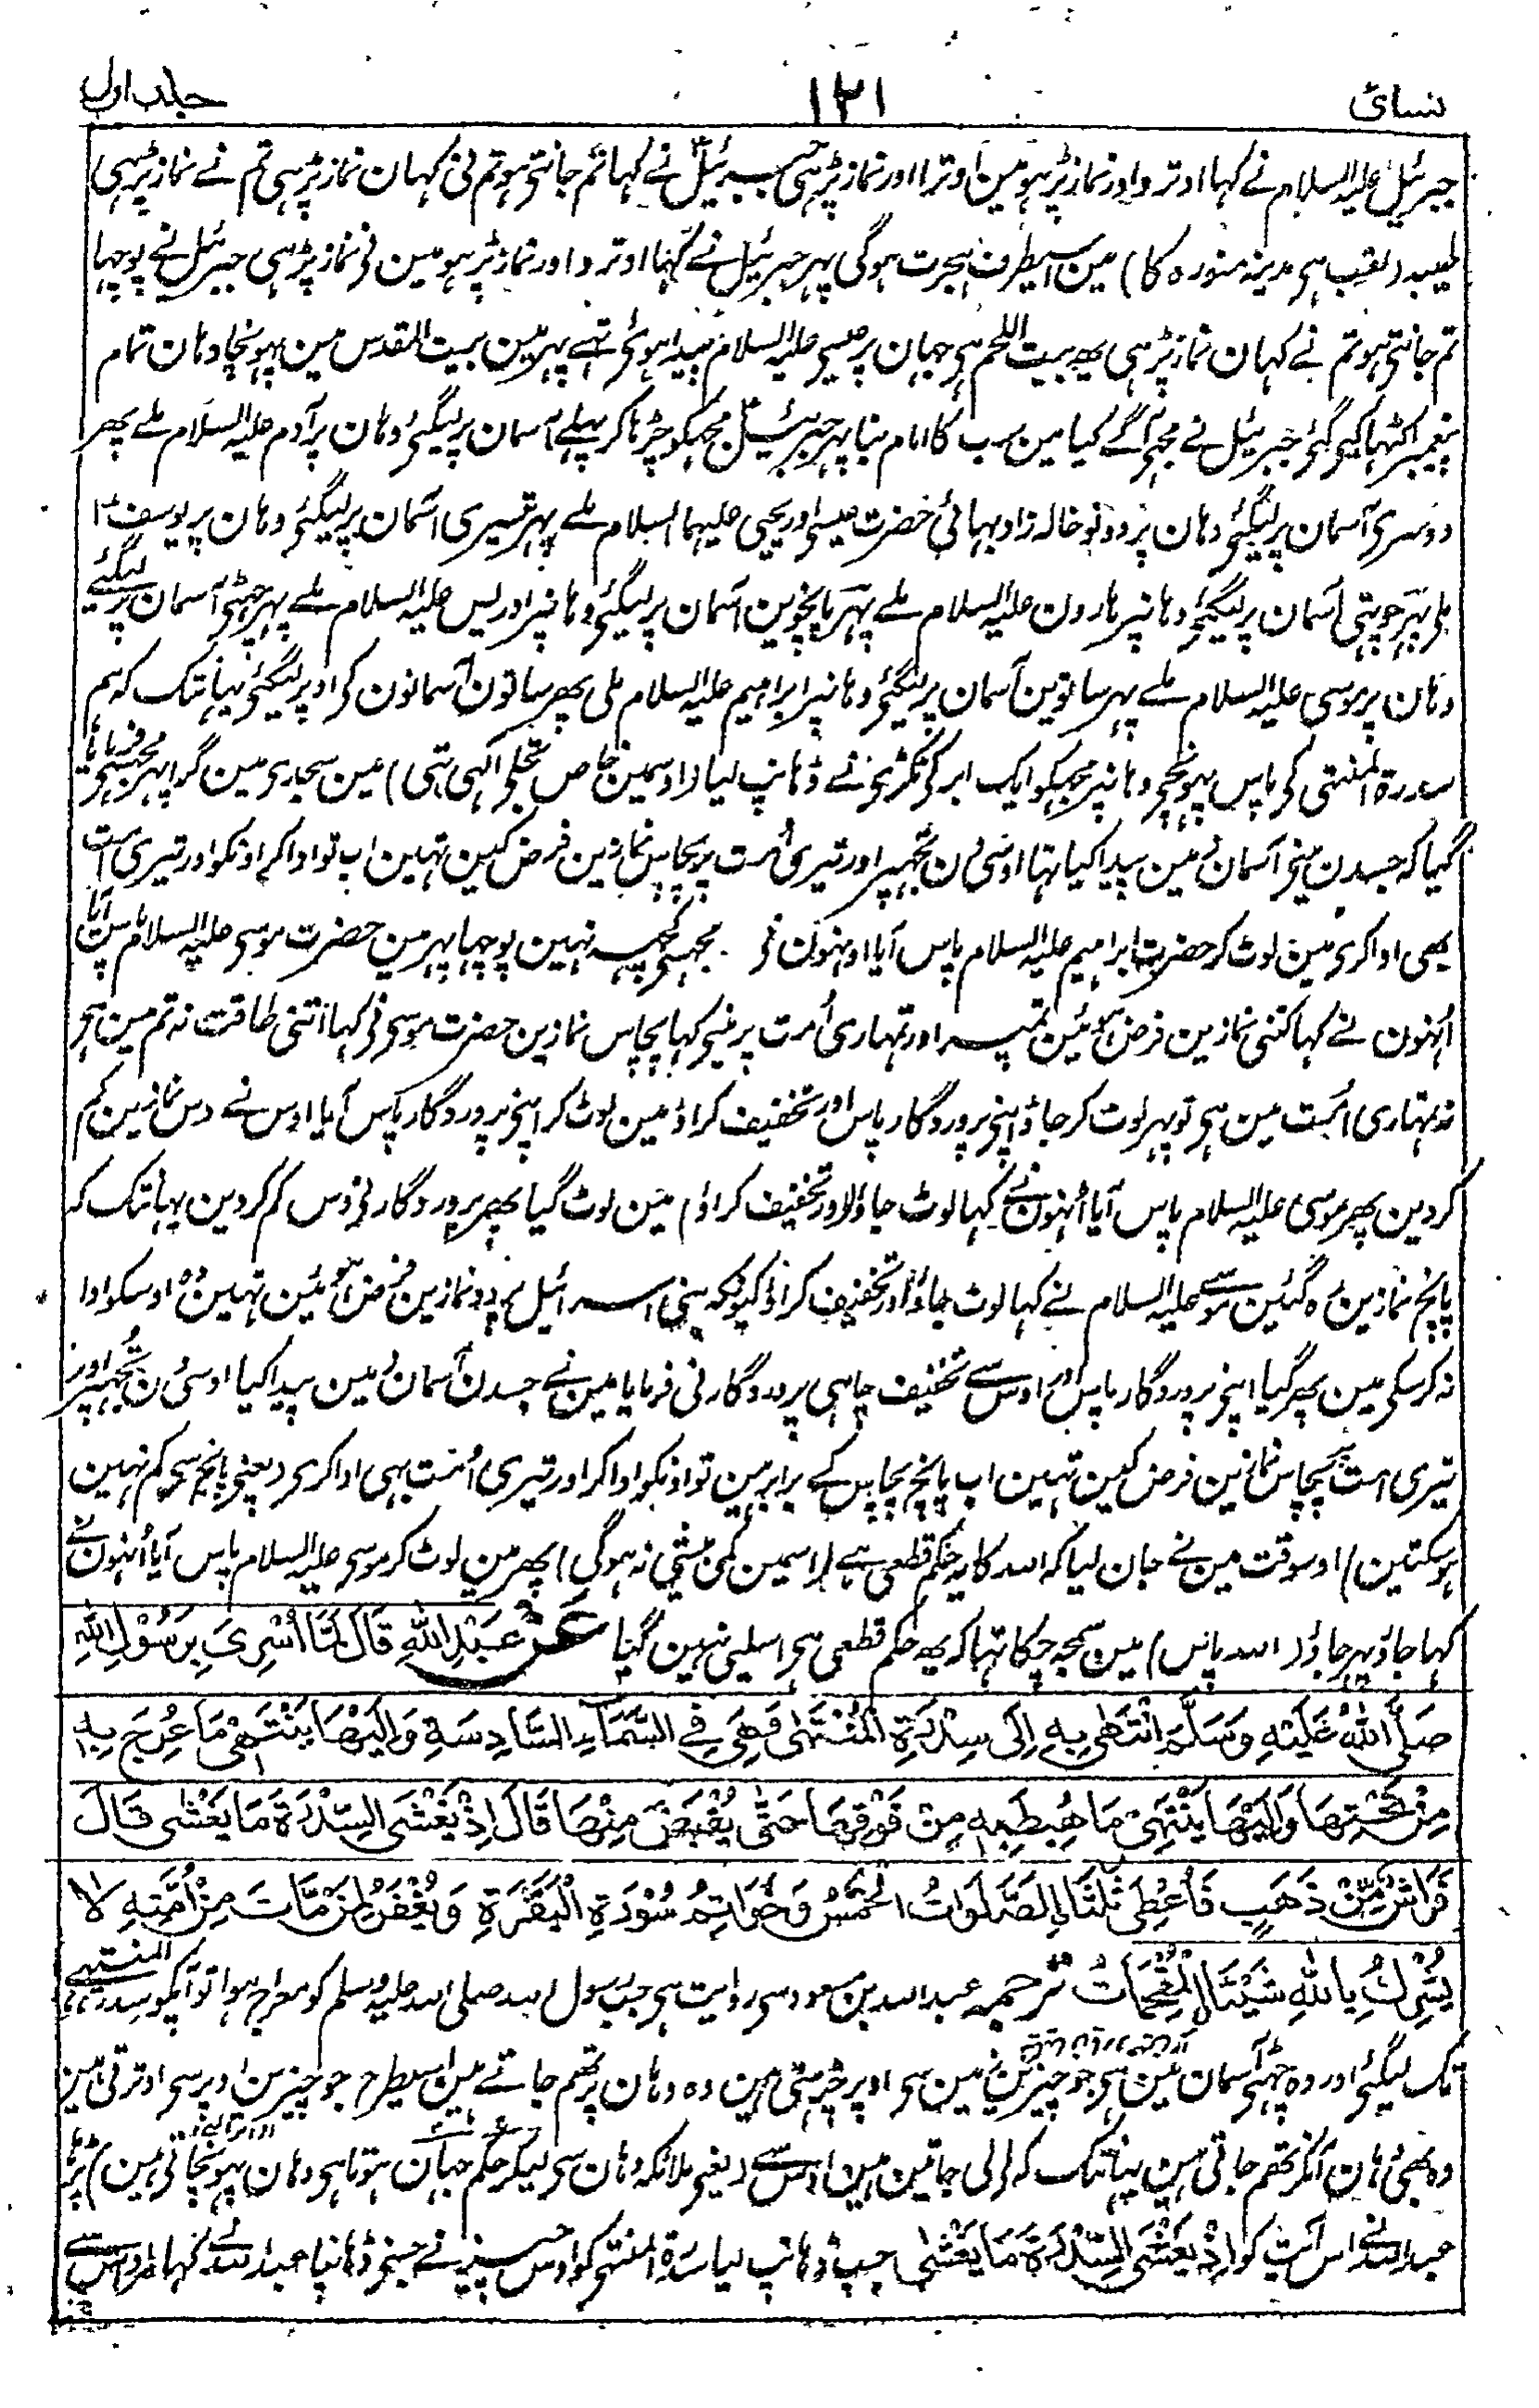 نسائی ۱۲۱ جلد اول
جبرئیل علیہ السلام نے کہا اوترو اور نماز پڑہو مین اوترا اور نماز پڑہی جبرئیل نے کہا تم جانتی ہو تم نی کہان نماز پڑہی تم نے نماز پڑہی
طیبہ (لقب ہی مدینہ منورہ کا) مین اسیطرف ہجرت ہوگی پہر جبرئیل نے کہا اوترو اور نماز پڑہو مین نی نماز پڑہی جبرئیل نے پوچہا
تم جانتی ہو تم نے کہان نماز پڑہی یہ بیت اللحم ہی جہان پر عیسی علیہ السلام پیدا ہوئی تہے پہر مین بیت المقدس مین پہونچا وہان تمام
پیغمبر اکٹہا کیی گئی جبرئیل نے مجہی آگے کیا مین سب کا امام بنا پہر جبرئیل مجہکو چڑہا کر پہلے آسمان پر لیگئی وہان پر آدم علیہ السلام ملے پھر
دوسری آسمان پر لیگئی وہان پر دونو خالہ زاد بہائی حضرت عیسی اور یحیی علیہما السلام ملے پہر تیسری آسمان پر لیگئی وہان پر یوسف ؑ
ملی پہر چوتہی آسمان پر لیگئی وہانپر ہارون علیہ السلام ملے پہر پانچوین آسمان پر لیگئی وہانپر ادریس علیہ السلام ملے پہر چہٹی آسمان پر لیگئے
وہان پر موسی علیہ السلام ملے پہر ساتوین آسمان پر لیگئی وہانپر ابراہیم علیہ السلام ملی پھر ساتون آسمانون کی اوپر لیگئی یہانتک کہ ہم
سدرۃ المنتہی کی پاس پہونچی وہانپر مجہکو ایک ابر کی ٹکڑی نے ڈہانپ لیا (اوسمین خاص تجلی الہی تہی) مین سجدی مین گرا پہر مجہسی فرمایا
گیا کہ جسدن مینی آسمان زمین پیدا کیا تہا اوسی دن تجہپر اور تیری امت پر پچاس نمازین فرض کین تہین اب تو ادا کر اونکو اور تیری امت
بھی ادا کری مین لوٹ کر حضرت ابراہیم علیہ السلام پاس آیا اونہون نی مجہسی کچہہ نہین پوچہا پہر مین حضرت موسی علیہ السلام پاس آیا
اُنہون نے کہا کتنی نمازین فرض ہوئین تمپر اور تمہاری اُمت پر مینی کہا پچاس نمازین حضرت موسی نی کہا اتنی طاقت نہ تم مین ہی
نہ تمہاری امت مین ہی تو پہر لوٹ کر جاؤ اپنی پروردگار پاس اور تخفیف کراؤ مین لوٹ کر اپنی پروردگار پاس آیا اوس نے دس نمازین کم
کردین پھر موسی علیہ السلام پاس آیا اُنہون نے کہا لوٹ جاؤ اور تخفیف کراؤ مین لوٹ گیا پھر پروردگار نی دس کم کردین یہانتک کہ
پانچ نمازین رہ گئین موسی علیہ السلام نے کہا لوٹ جاؤ اور تخفیف کراؤ کیونکہ بنی اسرائیل پر دو نمازین فرض ہوئین تہین وہ اوسکو ادا
نہ کرسکی مین پھر گیا اپنی پروردگار پاس اور اوس سے تخفیف چاہی پروردگار نی فرمایا مین نے جسدن آسمان زمین پیدا کیا اوسی دن تجہپر اور
تیری امت پر پچاس نمازین فرض کین تہین اب پانچ پچاس کے برابر ہین تو اونکو ادا کر اور تیری اُمت بہی ادا کری (یعنی پانچ سی کم نہین
ہوسکتین) اوسوقت مین نے جان لیا کہ اللہ کا یہ حکم قطعی ہے (اسمین کمی بیشی نہ ہوگی) پھر مین لوٹ کر موسی علیہ السلام پاس آیا اُنہون نے
کہا جاؤ پہر جاؤ (اللہ پاس) مین سمجہ چکا تہا کہ یہ حکم قطعی ہی اسلیی نہین گیا عَنْ عَبْدِ اللهِ قَالَ لَمَّا اُسْرِیَ بِرَسُوْلِ اللهِ
صَلَّى اللهُ عَلَيْهِ وَسَلَّمَ انْتَهٰى بِهٖ اِلٰى سِدْرَةِ الْمُنْتَهٰى وَهِيَ فِي السَّمَاءِ السَّادِسَةِ وَاِلَيْهَا يَنْتَهِيْ مَا عُرِجَ بِهٖ
مِنْ تَحْتِهَا وَاِلَيْهَا يَنْتَهِيْ مَا هُبِطَ بِهٖ مِنْ فَوْقِهَا حَتّٰى يُقْبَضَ مِنْهَا قَالَ اِذْ يَغْشَى السِّدْرَةَ مَا يَغْشٰى قَالَ
فَرَاشٌ مِّنْ ذَهَبٍ فَاُعْطِيَ ثَلٰثًا الصَّلَوَاتُ الْخَمْسُ وَخَوَاتِمُ سُوْرَةِ الْبَقَرَةِ وَيُغْفَرُ لِمَنْ مَّاتَ مِنْ اُمَّتِهٖ لَا
يُشْرِكُ بِاللهِ شَيْئًا الْمُقْحِمَاتُ ترجمہ عبداللہ بن مسعود سی روایت ہی جب رسول اللہ صلی اللہ علیہ وسلم کو معراج ہوا تو آپکو سدرۃ المنتہی
تک لیگئی اور وہ چہٹی آسمان مین ہی جو چیزین زمین سی اوپر چڑہتی ہین وہ وہان پر تھم جاتے ہین اسیطرح جو چیزین اوپر سی اوترتی ہین
وہ بھی وہان آنکر تھم جاتی ہین یہانتک کہ لی لی جاتین ہین اوس سے (یعنی ملائکہ وہان سی لیکر حکم جہان ہوتا ہی وہان پہونچاتی ہین) پڑہا
عبداللہ نے اس آیت کو اِذْ يَغْشَى السِّدْرَةَ مَا يَغْشٰى جب ڈہانپ لیا سدرۃ المنتہی کو اوس چیز نے جسنی ڈہانپا عبداللہ نے کہا مراد اس سے